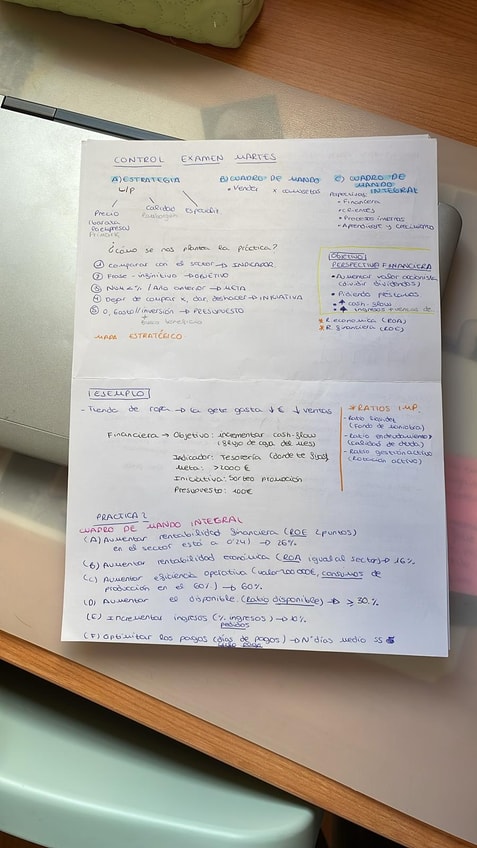 CONTROL EXAMEN MARTES
A) ESTRATEGIA
L/P
Precio
(barata
Primark
Calidad
Especialir
B) CUADRO DE MANDO
• Vender x camisetas
C) CUADRO DE
MANDO
INTEGRAL
Perspectivas
- Financiera
- clientes
- Procesos internos
- Aprendizaje y crecimiento
¿Cómo se nos plantea la práctica?
① comparar con el sector → INDICADOR
② Frase - infinitivo → OBJETIVO
③ Nº/€/% /Año anterior → META
④ Dejar de comprar x, dar, deshacer → INICIATIVA
⑤ 0, Gasto//inversión → PRESUPUESTO
MAPA ESTRATÉRICO
OBJETIVO
PERSPECTIVA FINANCIERA
• Aumentar valor accionista
(dividir dividendos)
• Pidiendo préstamos
• ↑ cash-flow
• ↑ ingresos + ventas de
* R económica (ROA)
* R financiera (ROE)
EJEMPLO
- Tienda de ropa → la gete gasta ↓€ ↓ventas
Financiera → Objetivo: incrementar cash-flow
(flujo de caja del mes)
Indicador: Tesorería (donde te fijas)
Meta: >1000 €
Iniciativa: Sorteo promoción
Presupuesto: 100€
* RATIOS IMP.
- Ratio liquidez
(Fondo de maniobra)
- Ratio endeudamiento
(calidad de deuda)
- Ratio gestión activo
(Rotación activo)
PRÁCTICA 2
CUADRO DE MANDO INTEGRAL
(A) Aumentar rentabilidad financiera (ROE 2 puntos)
en el sector está a 0'24) → 26%
(B) Aumentar rentabilidad económica (ROA igual al sector) → 16%
(C) Aumentar eficiencia operativa (valor 200 000€, consumos de
producción en el 60%) → 60%
(D) Aumentar el disponible (Ratio disponible) → ≥ 30%
(E) Incrementar ingresos (% ingresos) → 10%
pedidos
(F) Optimitar los pagos (días de pagos) → Nº días medio 55